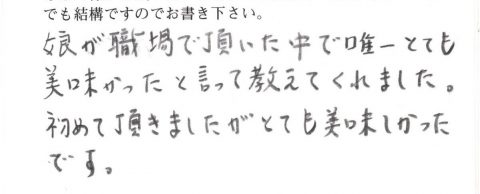 でも結構ですのでお書き下さい。
娘が職場で頂いた中で唯一とても
美味かったと言って教えてくれました。
初めて頂きましたがとても美味しかった
です。